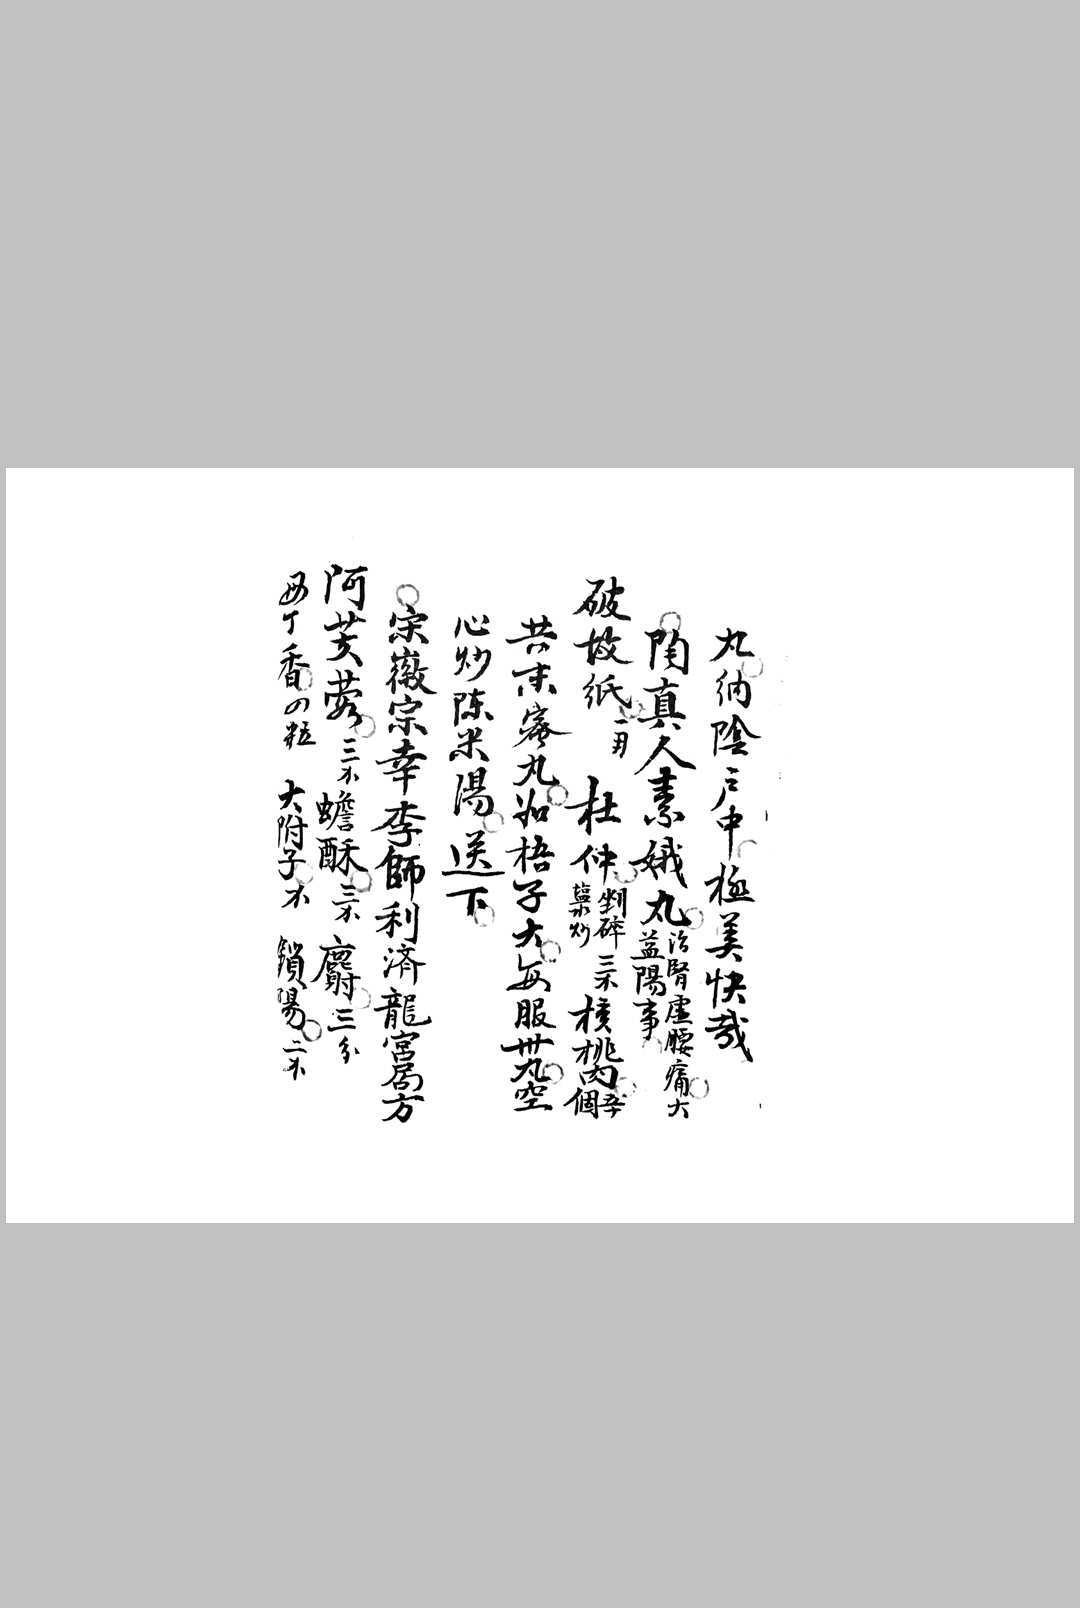 丸納陰戶中極美快哉
陶真人素娥丸治腎虛腰痛大益陽事
破故紙一両 杜仲剉碎薑炒三不核桃肉五個
共末蜜丸如梧子大每服卅丸空
心炒陳米湯送下
宋徽宗幸李師利済龍宮局方
阿芙蓉三不蟾酥三不麝三分
母丁香四粒 大附子不 鎖陽二不